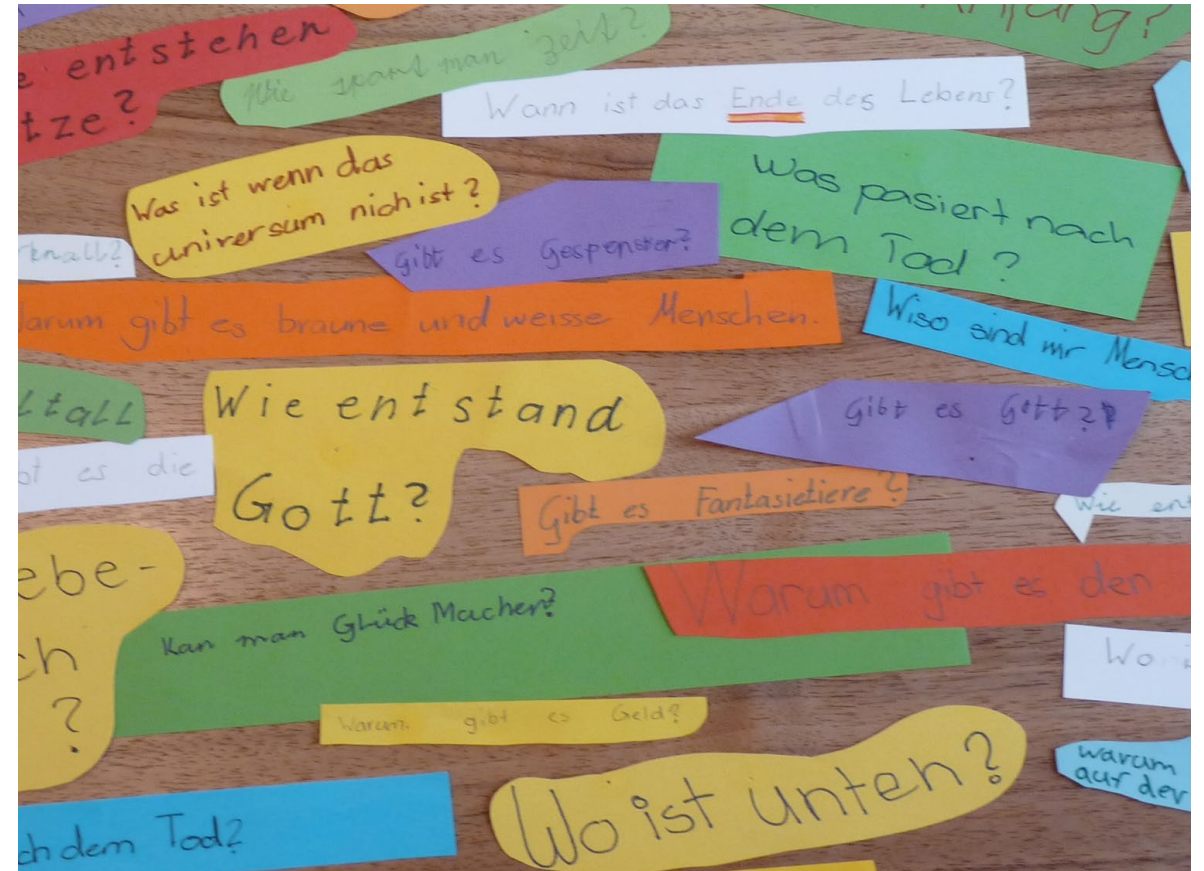 entstehen
tze?
Wie spart man zeit?
Anfang?
Wann ist das Ende des Lebens?
Was ist wenn das
universum nich ist?
knall?
gibt es Gespenster?
Was pasiert nach
dem Tod?
arum gibt es braune und weisse Menschen.
Wiso sind mir Mensc
ltall
Wie entstand
Gott?
Gibt es Gott?
bt es die
Gibt es Fantasietiere?
Wie ent
ebe-
ch
?
Kan man Glück Machen?
Warum gibt es den
Wo
Warum gibt es Geld?
Wo ist unten?
warum
auf der
ch dem Tod?